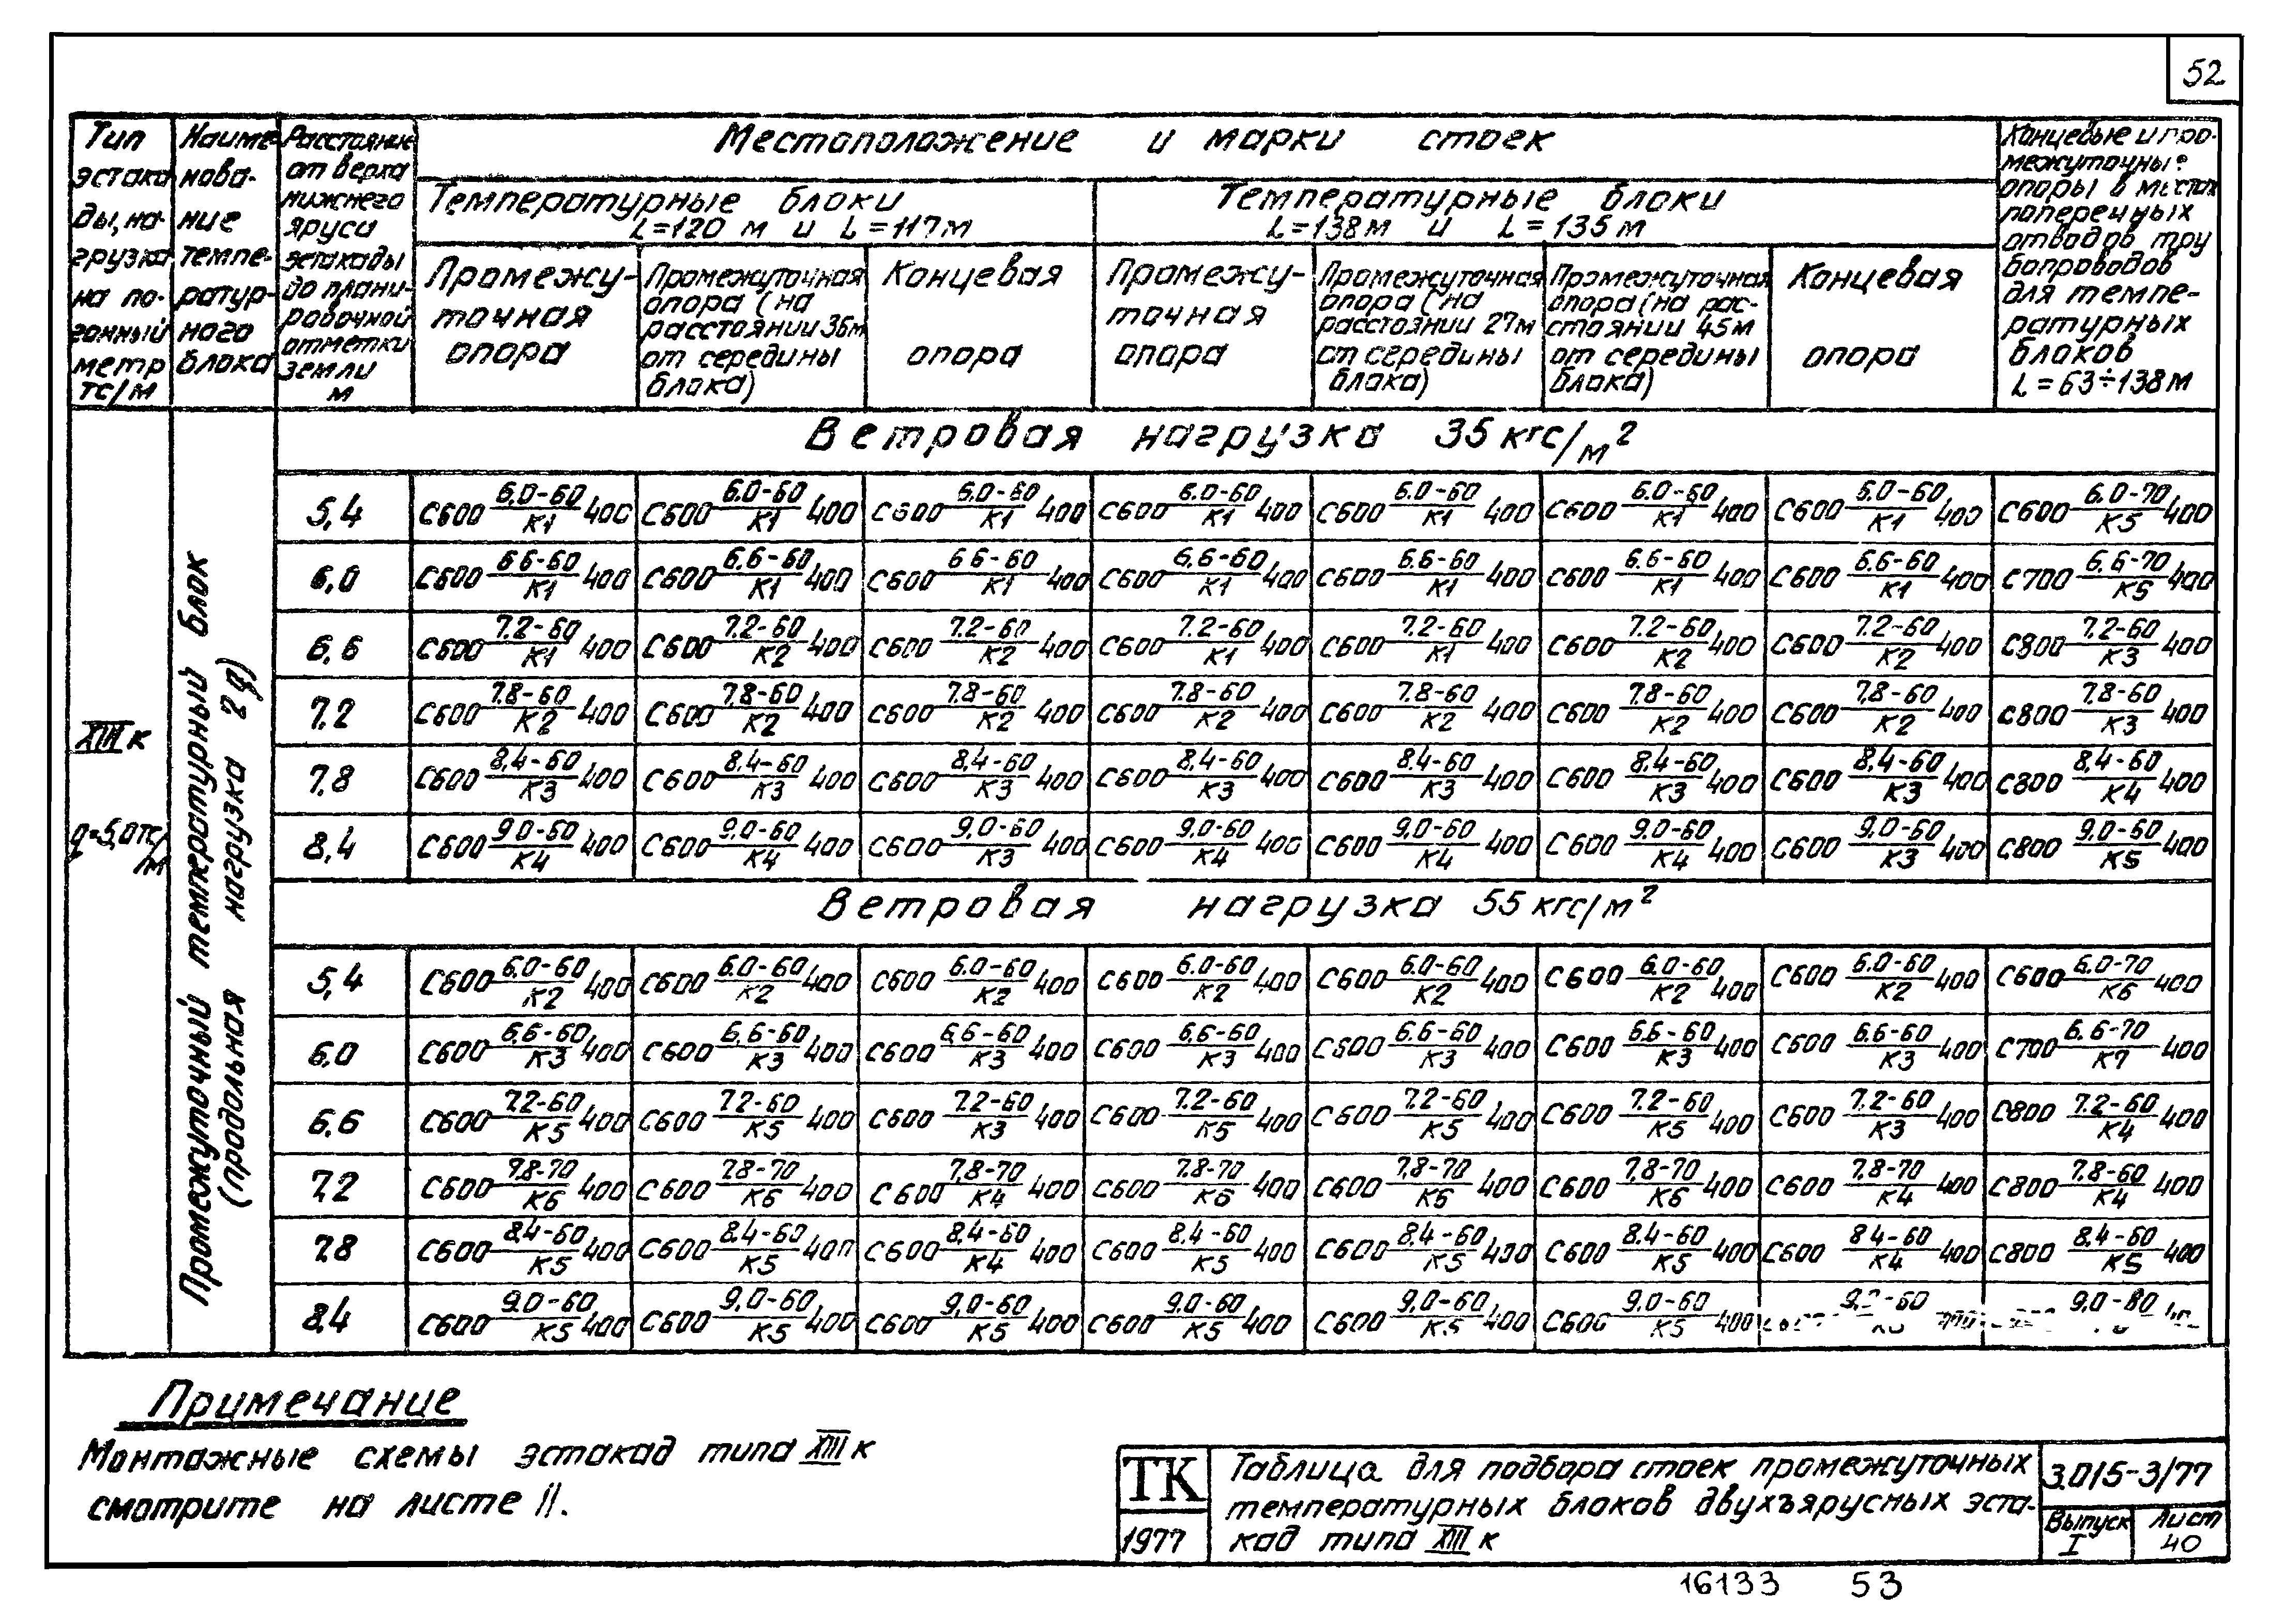 52
Тип эстакады, нагрузка на погонный метр тс/м
Наименование температурного блока
Расстояние от верха нижнего яруса эстакады до планировочной отметки земли м
Местоположение и марки стоек
Температурные блоки L=120 м и L=117м
Температурные блоки L=138м и L=135м
Концевые и промежуточные опоры в местах поперечных отводов трубопроводов для температурных блоков L=63÷138м
Промежуточная опора
Промежуточная опора (на расстоянии 36м от середины блока)
Концевая опора
Промежуточная опора
Промежуточная опора (на расстоянии 27м от середины блока)
Промежуточная опора (на расстоянии 45м от середины блока)
Концевая опора
XIIIк
q=5,0тс/м
Промежуточный температурный блок
(продольная нагрузка 2q)
Ветровая нагрузка 35кгс/м²
5,4 С600 6.0-60/К1 400 С600 6.0-60/К1 400 С600 6.0-60/К1 400 С600 6.0-60/К1 400 С600 6.0-60/К1 400 С600 6.0-60/К1 400 С600 6.0-60/К1 400 С600 6.0-70/К5 400
6,0 С600 6.6-60/К1 400 С600 6.6-60/К1 400 С600 6.6-60/К1 400 С600 6.6-60/К1 400 С600 6.6-60/К1 400 С600 6.6-60/К1 400 С600 6.6-60/К1 400 С700 6.6-70/К5 400
6,6 С600 7.2-60/К1 400 С600 7.2-60/К2 400 С600 7.2-60/К2 400 С600 7.2-60/К1 400 С600 7.2-60/К1 400 С600 7.2-60/К2 400 С600 7.2-60/К2 400 С800 7.2-60/К3 400
7,2 С600 7.8-60/К2 400 С600 7.8-60/К2 400 С600 7.8-60/К2 400 С600 7.8-60/К2 400 С600 7.8-60/К2 400 С600 7.8-60/К2 400 С600 7.8-60/К2 400 С800 7.8-60/К3 400
7,8 С600 8,4-60/К3 400 С600 8,4-60/К3 400 С600 8,4-60/К3 400 С600 8,4-60/К3 400 С600 8.4-60/К3 400 С600 8,4-60/К3 400 С600 8,4-60/К3 400 С800 8,4-60/К4 400
8,4 С600 9.0-60/К4 400 С600 9.0-60/К4 400 С600 9,0-60/К3 400 С600 9.0-60/К4 400 С600 9.0-60/К4 400 С600 9.0-60/К4 400 С600 9.0-60/К3 400 С800 9.0-60/К5 400
Ветровая нагрузка 55кгс/м²
5,4 С600 6.0-60/К2 400 С600 6.0-60/К2 400 С600 6.0-60/К2 400 С600 6.0-60/К2 400 С600 6.0-60/К2 400 С600 6.0-60/К2 400 С600 6.0-60/К2 400 С600 6.0-70/К6 400
6,0 С600 6.6-60/К3 400 С600 6,6-60/К3 400 С600 6,6-60/К3 400 С600 6,6-60/К3 400 С600 6.6-60/К3 400 С600 6.6-60/К3 400 С600 6.6-60/К3 400 С700 6.6-70/К7 400
6,6 С600 7.2-60/К5 400 С600 7.2-60/К5 400 С600 7.2-60/К3 400 С600 7.2-60/К5 400 С600 7.2-60/К5 400 С600 7.2-60/К5 400 С600 7.2-60/К3 400 С800 7.2-60/К4 400
7,2 С600 7,8-70/К6 400 С600 7,8-70/К6 400 С600 7,8-70/К4 400 С600 7,8-70/К6 400 С600 7,8-70/К6 400 С600 7,8-70/К6 400 С600 7,8-70/К4 400 С800 7,8-60/К4 400
7,8 С600 8.4-60/К5 400 С600 8.4-60/К5 400 С600 8,4-60/К4 400 С600 8.4-60/К5 400 С600 8,4-60/К5 400 С600 8.4-60/К5 400 С600 8 4-60/К4 400 С800 8,4-60/К5 400
8,4 С600 9.0-60/К5 400 С600 9,0-60/К5 400 С600 9,0-60/К5 400 С600 9.0-60/К5 400 С600 9.0-60/К5 400 С600 9.0-60/К5 400 9.0-80
Примечание
Монтажные схемы эстакад типа XIIIк
смотрите на листе 11.
ТК
1977
Таблица для подбора стоек промежуточных
температурных блоков двухъярусных эста-
кад типа XIIIк
3.015-3/77
Выпуск I
Лист 40
16133 53